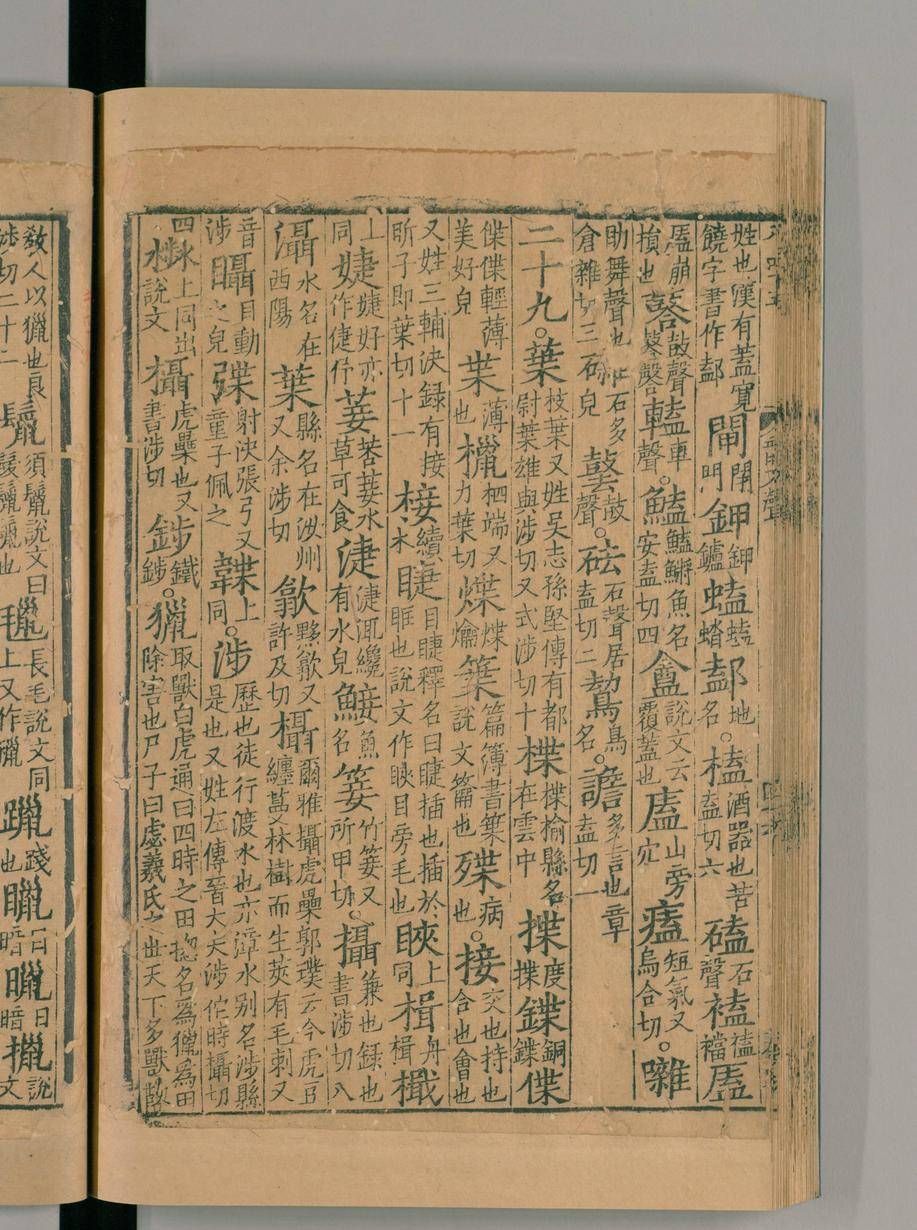 姓也漢有蓋寬饒字書作 閘閉門鉀鉀鑪 地名。榼酒器也苦盍切六磕石聲 㕎
㕎崩損也 鼓聲 車聲。鰪鰪鱂魚名安盍切四盦說文云覆蓋也廅山旁穴 短氣又烏合切。囃
助舞聲也倉雜切三 石多石皃 鼓聲。砝石聲居盍切二 鳥名。譫多言也章盍切一
二十九。葉枝葉又姓吳志孫堅傳有都尉葉雄與涉切又式涉切十楪楪榆縣名在雲中揲度揲鍱銅鍱偞
偞偞輕薄美好皃枼薄也 柶端又力葉切煠煠爚䈎篇簿書䈎說文籥也殜病也。接交也持也合也會也
又姓三輔決錄有接昕子即葉切十一椄續木睫目睫釋名曰睫插也插於眶也說文作䀹目旁毛也䀹上同楫舟楫檝
上同婕婕妤亦作倢伃菨荅菨水草可食淁淁 纔有水皃鯜魚名箑竹箑又所甲切。攝兼也錄也書涉切八
灄水名在西陽葉縣名在汝州又余涉切歙黟歙又許及切欇爾雅欇虎櫐郭璞云今虎豆纏蔓林樹而生莢有毛刺又
音涉䁋目動之皃弽射決張弓又童子佩之韘上同。涉歷也徒行渡水也亦漳水別名涉縣是也又姓左傳晉大夫涉佗時攝切
四 上同出說文欇虎櫐也又書涉切 鐵 。獵取獸白虎通曰四時之田捴名為獵為田除害也尸子曰虙羲氏之世天下多獸故
教人以獵也良涉切二十二鬛須鬛說文曰髮鬛鬛也 長毛說文同上又作 躐踐也